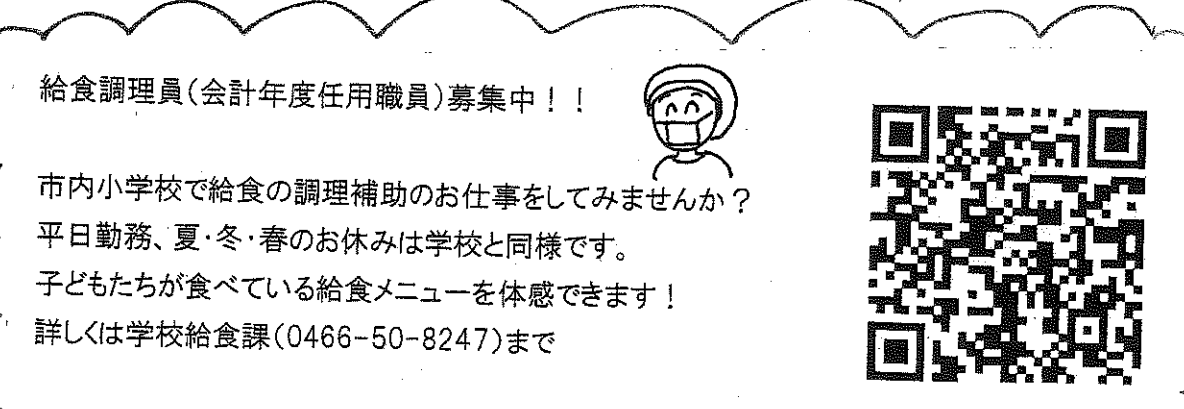 給食調理員(会計年度任用職員)募集中！！
市内小学校で給食の調理補助のお仕事をしてみませんか？
平日勤務、夏・冬・春のお休みは学校と同様です。
子どもたちが食べている給食メニューを体感できます！
詳しくは学校給食課(0466-50-8247)まで